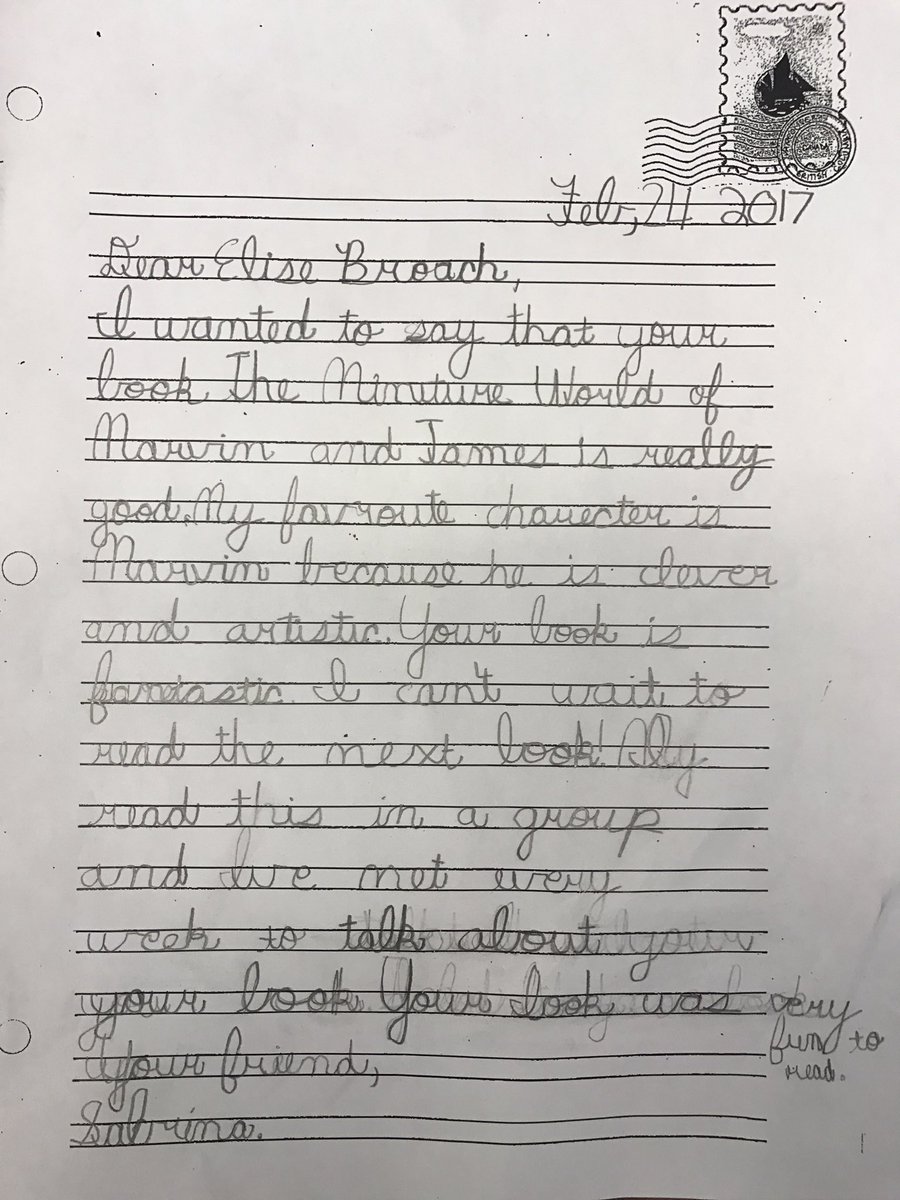 Febr,24 2017
Dear Elise Broach,
I wanted to say that your
book The Minuture World of
Marvin and James is really
good. My favroute charecter is
Marvin because he is clever
and artistic. Your book is
fantastic I can't wait to
read the next book! My
read this in a group
and I've met every
week to talk about your
your book Your book was very
fun to
read.
your friend,
Sabrina.